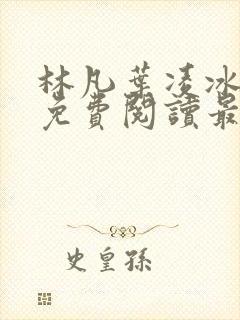 林凡葉凌冰
免費閱讀最
史皇孫